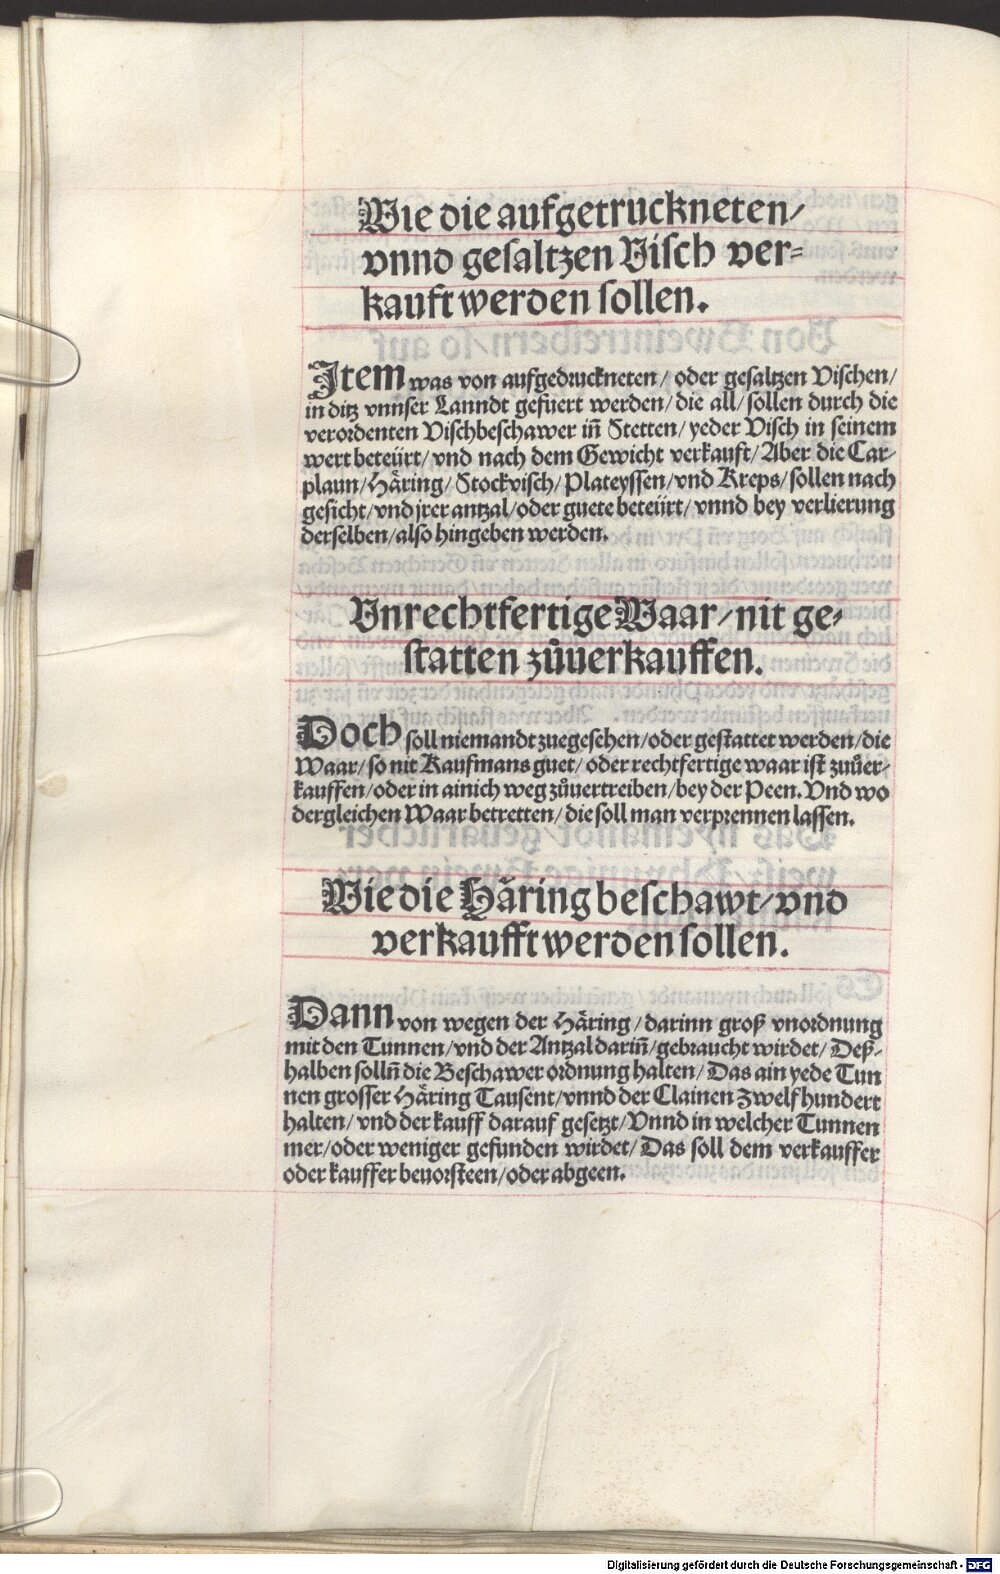 Wie die aufgetruckneten/
vnnd gesaltzen Visch ver=
kauft werden sollen.
Item was von aufgedruckneten/ oder gesaltzen Vischen/
in ditz vnnser Lanndt gefuert werden/ die all/ sollen durch die
verordenten Vischbeschawer in̄ Stetten/ yeder Visch in seinem
wert beteürt/ vnd nach dem Gewicht verkauft/ Aber die Car=
plaun/ Häring/ Stockvisch/ Plateyssen/ vnd Kreps/ sollen nach
gesicht/ vnd jrer antzal/ oder guete beteürt/ vnnd bey verlierung
derselben/ also hingeben werden.
Vnrechtfertige Waar/ nit ge=
statten zůuerkauffen.
Doch soll niemandt zuegesehen/ oder gestattet werden/ die
Waar/ so nit Kaufmans guet/ oder rechtfertige waar ist zuůer=
kauffen/ oder in ainich weg zůuertreiben/ bey der Peen. Vnd wo
dergleichen Waar betretten/ die soll man verprennen lassen.
Wie die Häring beschawt/ vnd
verkaufft werden sollen.
Dann von wegen der Häring/ darinn groß vnordnung
mit den Tunnen/ vnd der Antzal darin̄/ gebraucht wirdet/ Deß=
halben solln̄ die Beschawer ordnung halten/ Das ain yede Tun
nen grosser Häring Tausent/ vnnd der Clainen Zwelf hundert
halten/ vnd der kauff darauf gesetzt/ Vnnd in welcher Tunnen
mer/ oder weniger gefunden wirdet/ Das soll dem verkauffer
oder kauffer beuorsteen/ oder abgeen.
Digitalisierung gefördert durch die Deutsche Forschungsgemeinschaft - DFG